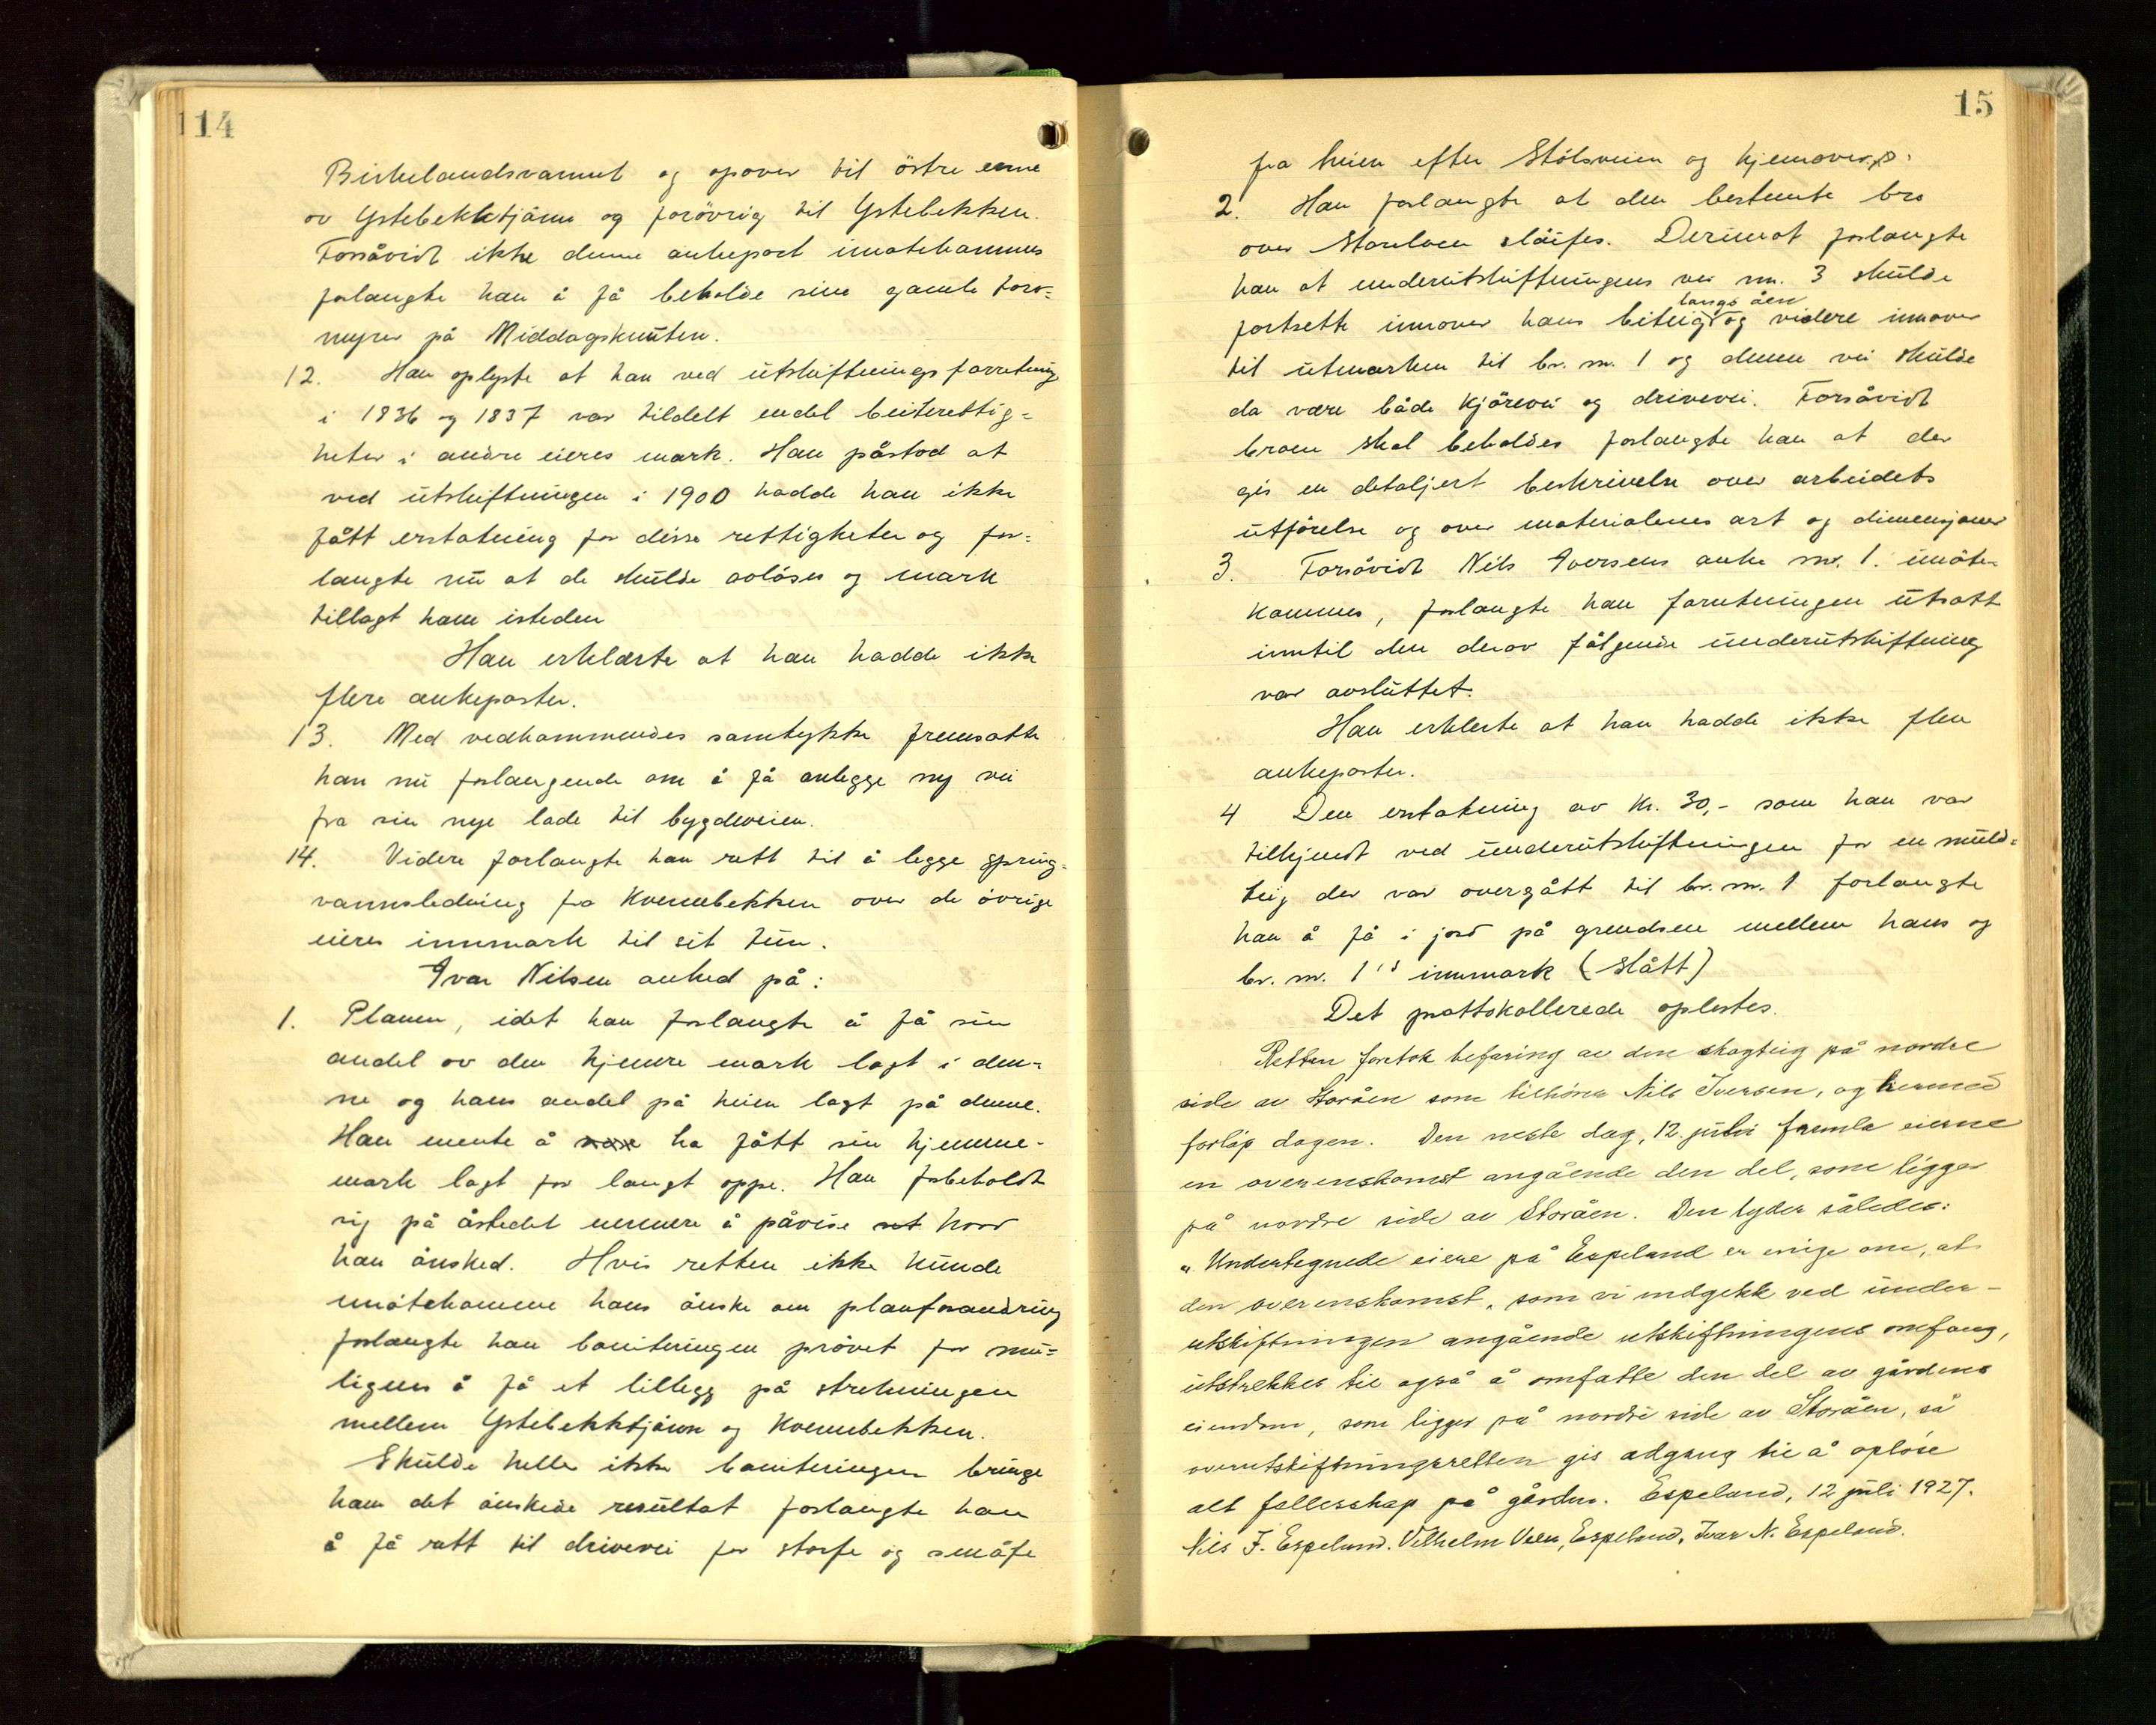 14
Birkelandsvannet og opover til östre enne
av Ystebekktjänn og forövrig til Ystebekken.
Forsåvidt ikke denne ankepost imötekommes
forlangte han å få beholde sine gamle torv=
myrer på Middagsknuten.
12. Han oplyste at han ved utskiftningsforretning
i 1836 og 1837 var tildelt endel beiterettig=
heter i andre eieres mark. Han påstod at
ved utskiftningen i 1900 hadde han ikke
fått erstatning for disse rettigheter og for=
langte nu at de skulde avlöses og mark
tillagt ham isteden
Han erklærte at han hadde ikke
flere ankeposter.
13. Med vedkommendes samtykke fremsatte
han nu forlangende om å få anlegge ny vei
fra sin nye lade til bygdeveien.
14. Videre forlangte han rett til å legge spring=
vannsledning fra Kvernbekken over de övrige
eieres innmark til sit tun.
Ivar Nilsen anked på:
1. Planen, idet han forlangte å få sin
andel av den hjemre mark lagt i den=
ne og hans andel på heien lagt på denne.
Han mente å ha fått sin hjemme-
mark lagt for langt oppe. Han forbeholdt
sig på åstedet nermere å påvise hvor
han önsked. Hvis retten ikke kunde
imötekomme hans önske om planforandring
forlangte han boniteringen prövet for mu=
ligens å få et tillegg på strekningen
mellem Ystebekktjänn og Kvernbekken.
Skulde heller ikke boniteringen bringe
ham det önskede resultat forlangte han
å få rett til drivevei for storfe og småfe
15
fra heien efter Stölsveien og hjemover.
2. Han forlangte at den bestemte bro
over Storelven slöifes. Derimot forlangte
han at underutskiftningens vei nr. 3 skulde
langs åen
fortsette innover hans beiteig og videre innover
til utmarken til br. nr. 1 og denne vei skulde
da være både kjörevei og drivevei. Forsåvidt
broen skal beholdes forlangte han at der
gis en detaljert beskrivelse over arbeidets
utförelse og over materialenes art og dimensjoner
3. Forsåvidt Nils Iversens anke nr. 1. imöte-
kommes, forlangte han forretningen utsatt
inntil den derav fölgende underutskiftning
var avsluttet.
Han erklerte at han hadde ikke flere
ankeposter.
4 Den erstatning av kr. 30,- som han var
tilkjendt ved underutskiftningen for en muld=
teig der var overgått til br. nr. 1 forlangte
han å få i jord på grendsen mellem hans og
br. nr. 1's innmark (slått)
Det prottokollerede oplestes.
Retten foretok befaring av den skogteig på nordre
side av Storåen som tilhörer Nils Iversen, og hermed
forløp dagen. Den neste dag, 12. juli fremla eierne
en overenskomst angående den del, som ligger
på nordre side av Storåen. Den lyder således:
„Undertegnede eiere på Espeland er enige om, at
den overenskomst, som vi indgikk ved under-
utskiftningen angående utskiftningens omfang,
utstrekkes til også å omfatte den del av gårdens
eiendom, som ligger på nordre side av Storåen, så
overutskiftningsretten gis adgang til å opløse
alt fellesskap på gården. Espeland, 12 juli 1927.
Nils I. Espeland. Vilhelm Veen, Espeland, Ivar N. Espeland.